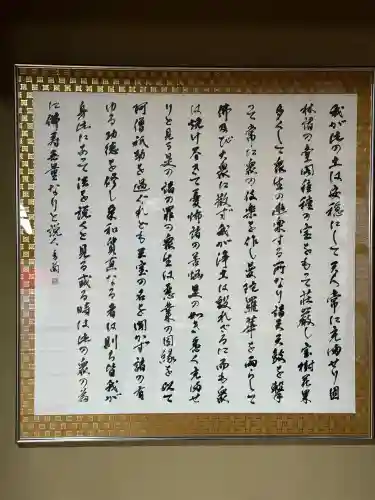 我が此の土は安穏にして天人常に充満せり園
林諸の堂閣種種の宝をもって荘厳し宝樹花果
多くして衆生の遊楽する所なり諸天天鼓を撃
って常に衆の伎楽を作し曼陀羅華を雨して
佛及び大衆に散ず我が浄土は毀れざるに而も衆
は焼け尽きて憂怖諸の苦悩是の如き悉く充満せ
りと見る是の諸の罪の衆生は悪業の因縁を以て
阿僧祇劫を過ぐれども三宝の名を聞かず諸の有
ゆる功徳を修し柔和質直なる者は則ち皆我が
身此にあって法を説くと見る或る時は此の衆の為
に佛寿無量なりと説く